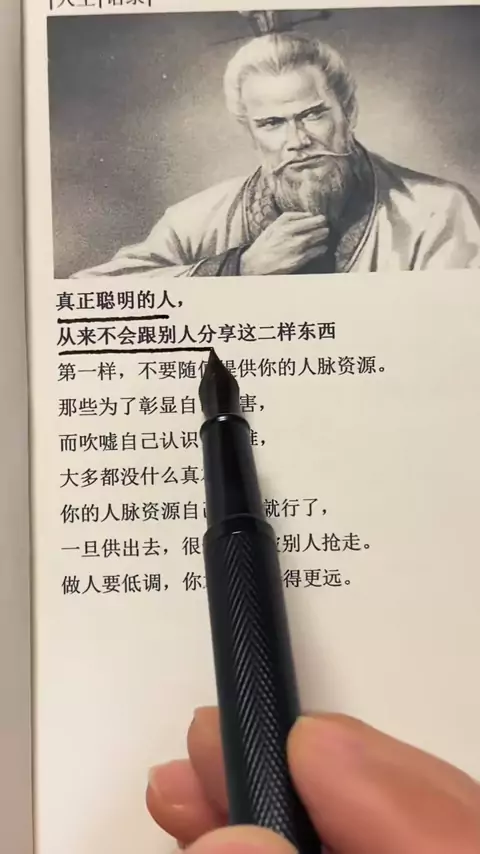 人生 语录
真正聪明的人，
从来不会跟别人分享这二样东西
第一样，不要随 提供你的人脉资源。
那些为了彰显自 害，
而吹嘘自己认识
大多都没什么真
你的人脉资源自 就行了，
一旦供出去，很 别人抢走。
做人要低调，你 得更远。